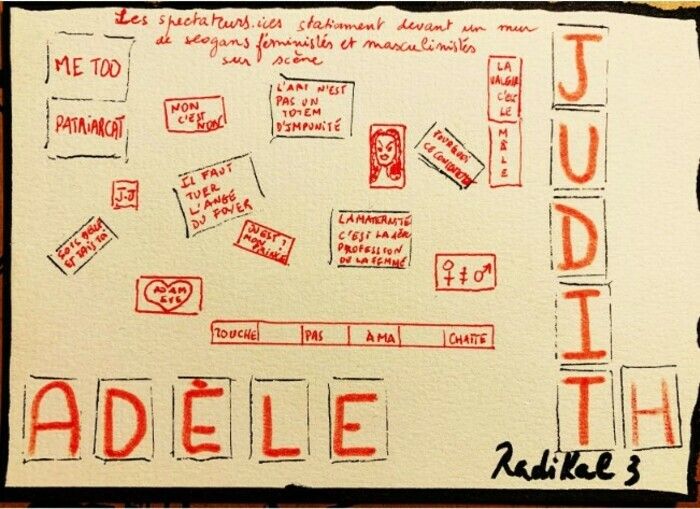 Les spectateurs.ices stationnent devant un mur
de slogans féministes et masculinistes
sur scène
ME TOO
PATRIARCAT
NON
C'EST
NON
L'ART N'EST
PAS UN
TOTEM
D'IMPUNITÉ
LA
VALEUR
C'EST
LE
MÂLE
POURQUOI
CE
J.J
IL FAUT
TUER
L'ANGE
DU FOYER
SOIS BELLE
ET TAIS TOI
OU EST ?
MON
PRINCE
LA MATERNITÉ
C'EST LA 1ÈRE
PROFESSION
DE LA FEMME
♀ ≠ ♂
ADAM
EVE
TOUCHE PAS À MA CHATTE
JUDITH
ADÈLE
RadiKal 3